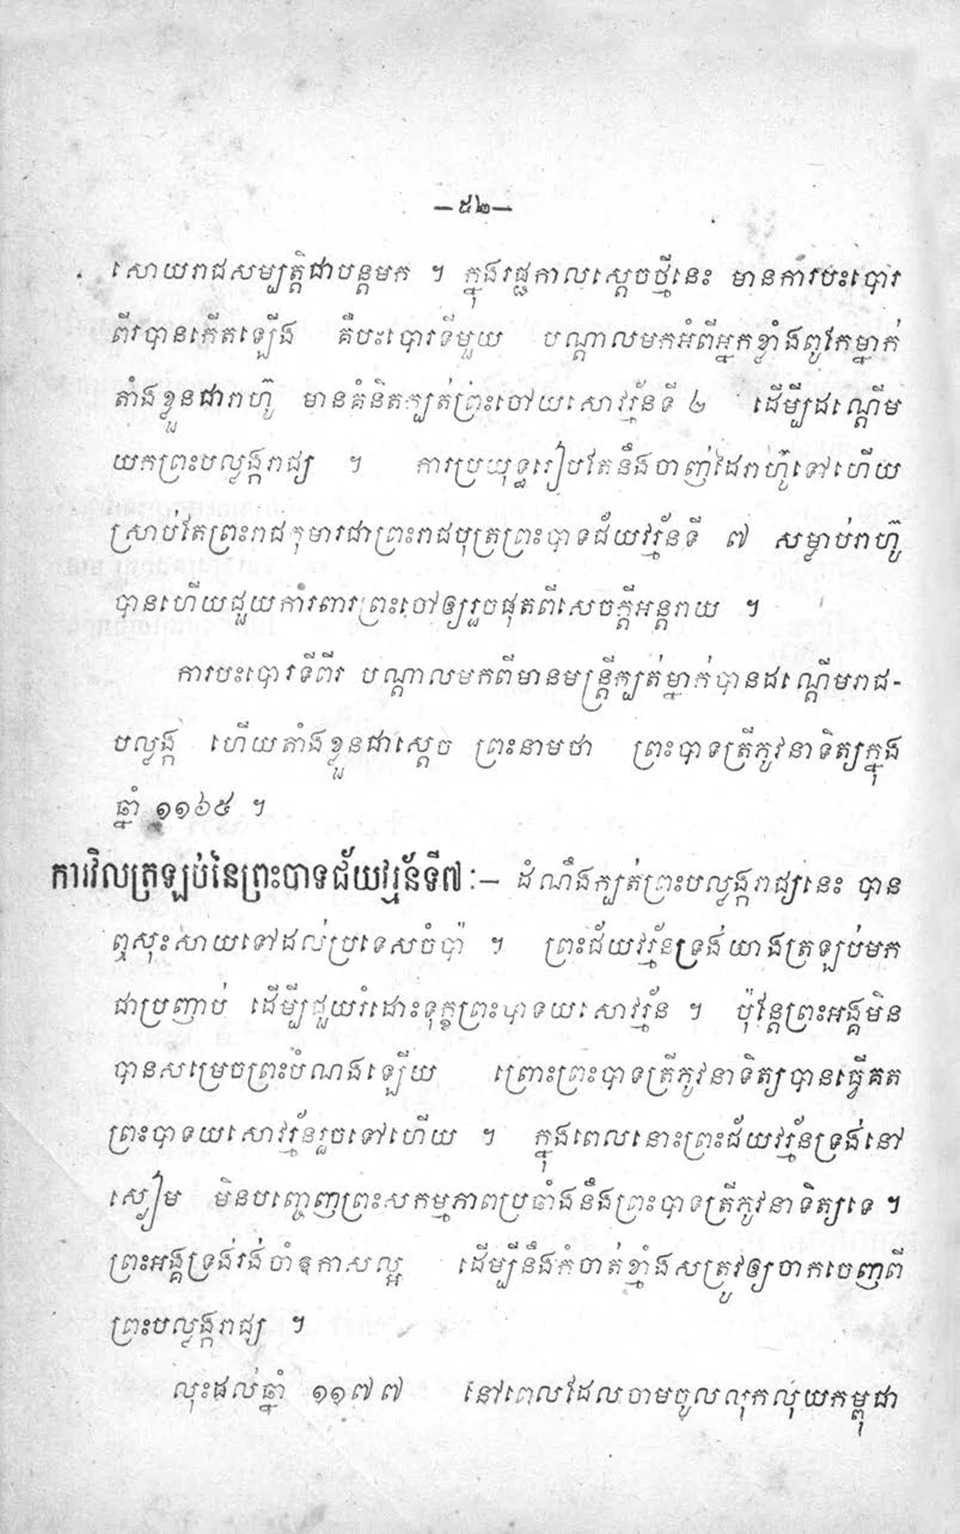 —៥២—
សោយរាជសម្បត្តិជាបន្តមក ។ ក្នុងរជ្ជកាលស្តេចថ្មីនេះ មានការបះបោរ
ពីរបានកើតឡើង គឺបះបោរទីមួយ បណ្តាលមកអំពីអ្នកខ្លាំងពូកែម្នាក់
តាំងខ្លួនជារាហ៊ូ មានគំនិតក្បត់ព្រះចៅយសោវរ្ម័នទី ២ ដើម្បីដណ្តើម
យកព្រះបល្ល័ង្ករាជ្យ ។ ការប្រយុទ្ធរៀបតែនឹងចាញ់ដៃរាហ៊ូទៅហើយ
ស្រាប់តែព្រះរាជកុមារជាព្រះរាជបុត្រព្រះបាទជ័យវរ្ម័នទី ៧ សម្លាប់រាហ៊ូ
បានហើយជួយការពារព្រះចៅឲ្យរួចផុតពីសេចក្តីអន្តរាយ ។
ការបះបោរទីពីរ បណ្តាលមកពីមានមន្ត្រីក្បត់ម្នាក់បានដណ្តើមរាជ-
បល្ល័ង្ក ហើយតាំងខ្លួនជាស្តេច ព្រះនាមថា ព្រះបាទត្រីភូវនាទិត្យក្នុង
ឆ្នាំ ១១៦៥ ។
ការវិលត្រឡប់នៃព្រះបាទជ័យវរ្ម័នទី៧ :— ដំណឹងក្បត់ព្រះបល្ល័ង្ករាជ្យនេះ បាន
ឮសុះសាយទៅដល់ប្រទេសចំប៉ា ។ ព្រះជ័យវរ្ម័នទ្រង់យាងត្រឡប់មក
ជាប្រញាប់ ដើម្បីជួយរំដោះទុក្ខព្រះបាទយសោវរ្ម័ន ។ ប៉ុន្តែព្រះអង្គមិន
បានសម្រេចព្រះបំណងឡើយ ព្រោះព្រះបាទត្រីភូវនាទិត្យបានធ្វើគត
ព្រះបាទយសោវរ្ម័នរួចទៅហើយ ។ ក្នុងពេលនោះព្រះជ័យវរ្ម័នទ្រង់នៅ
ស្ងៀម មិនបញ្ចេញព្រះសកម្មភាពប្រឆាំងនឹងព្រះបាទត្រីភូវនាទិត្យទេ ។
ព្រះអង្គទ្រង់រង់ចាំឱកាសល្អ ដើម្បីនឹងកំចាត់ខ្មាំងសត្រូវឲ្យចាកចេញពី
ព្រះបល្ល័ង្ករាជ្យ ។
លុះដល់ឆ្នាំ ១១៧៧ នៅពេលដែលចាមចូលលុកលុយកម្ពុជា